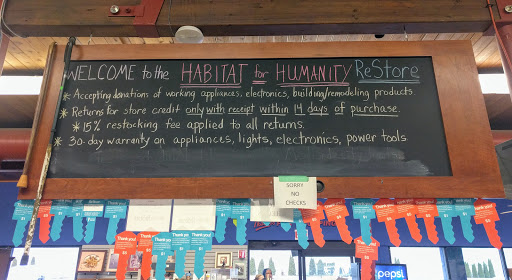 WELCOME to the HABITAT for HUMANITY ReStore
* Accepting donations of working appliances, electronics, building/remodeling products
* Returns for store credit only with receipt within 14 days of purchase.
* 15% restocking fee applied to all returns.
* 30-day warranty on appliances, lights, electronics, power tools
SORRY
NO
CHECKS
Thank you!
Thank you!
Thank you!
Thank you!
Thank you!
pepsi